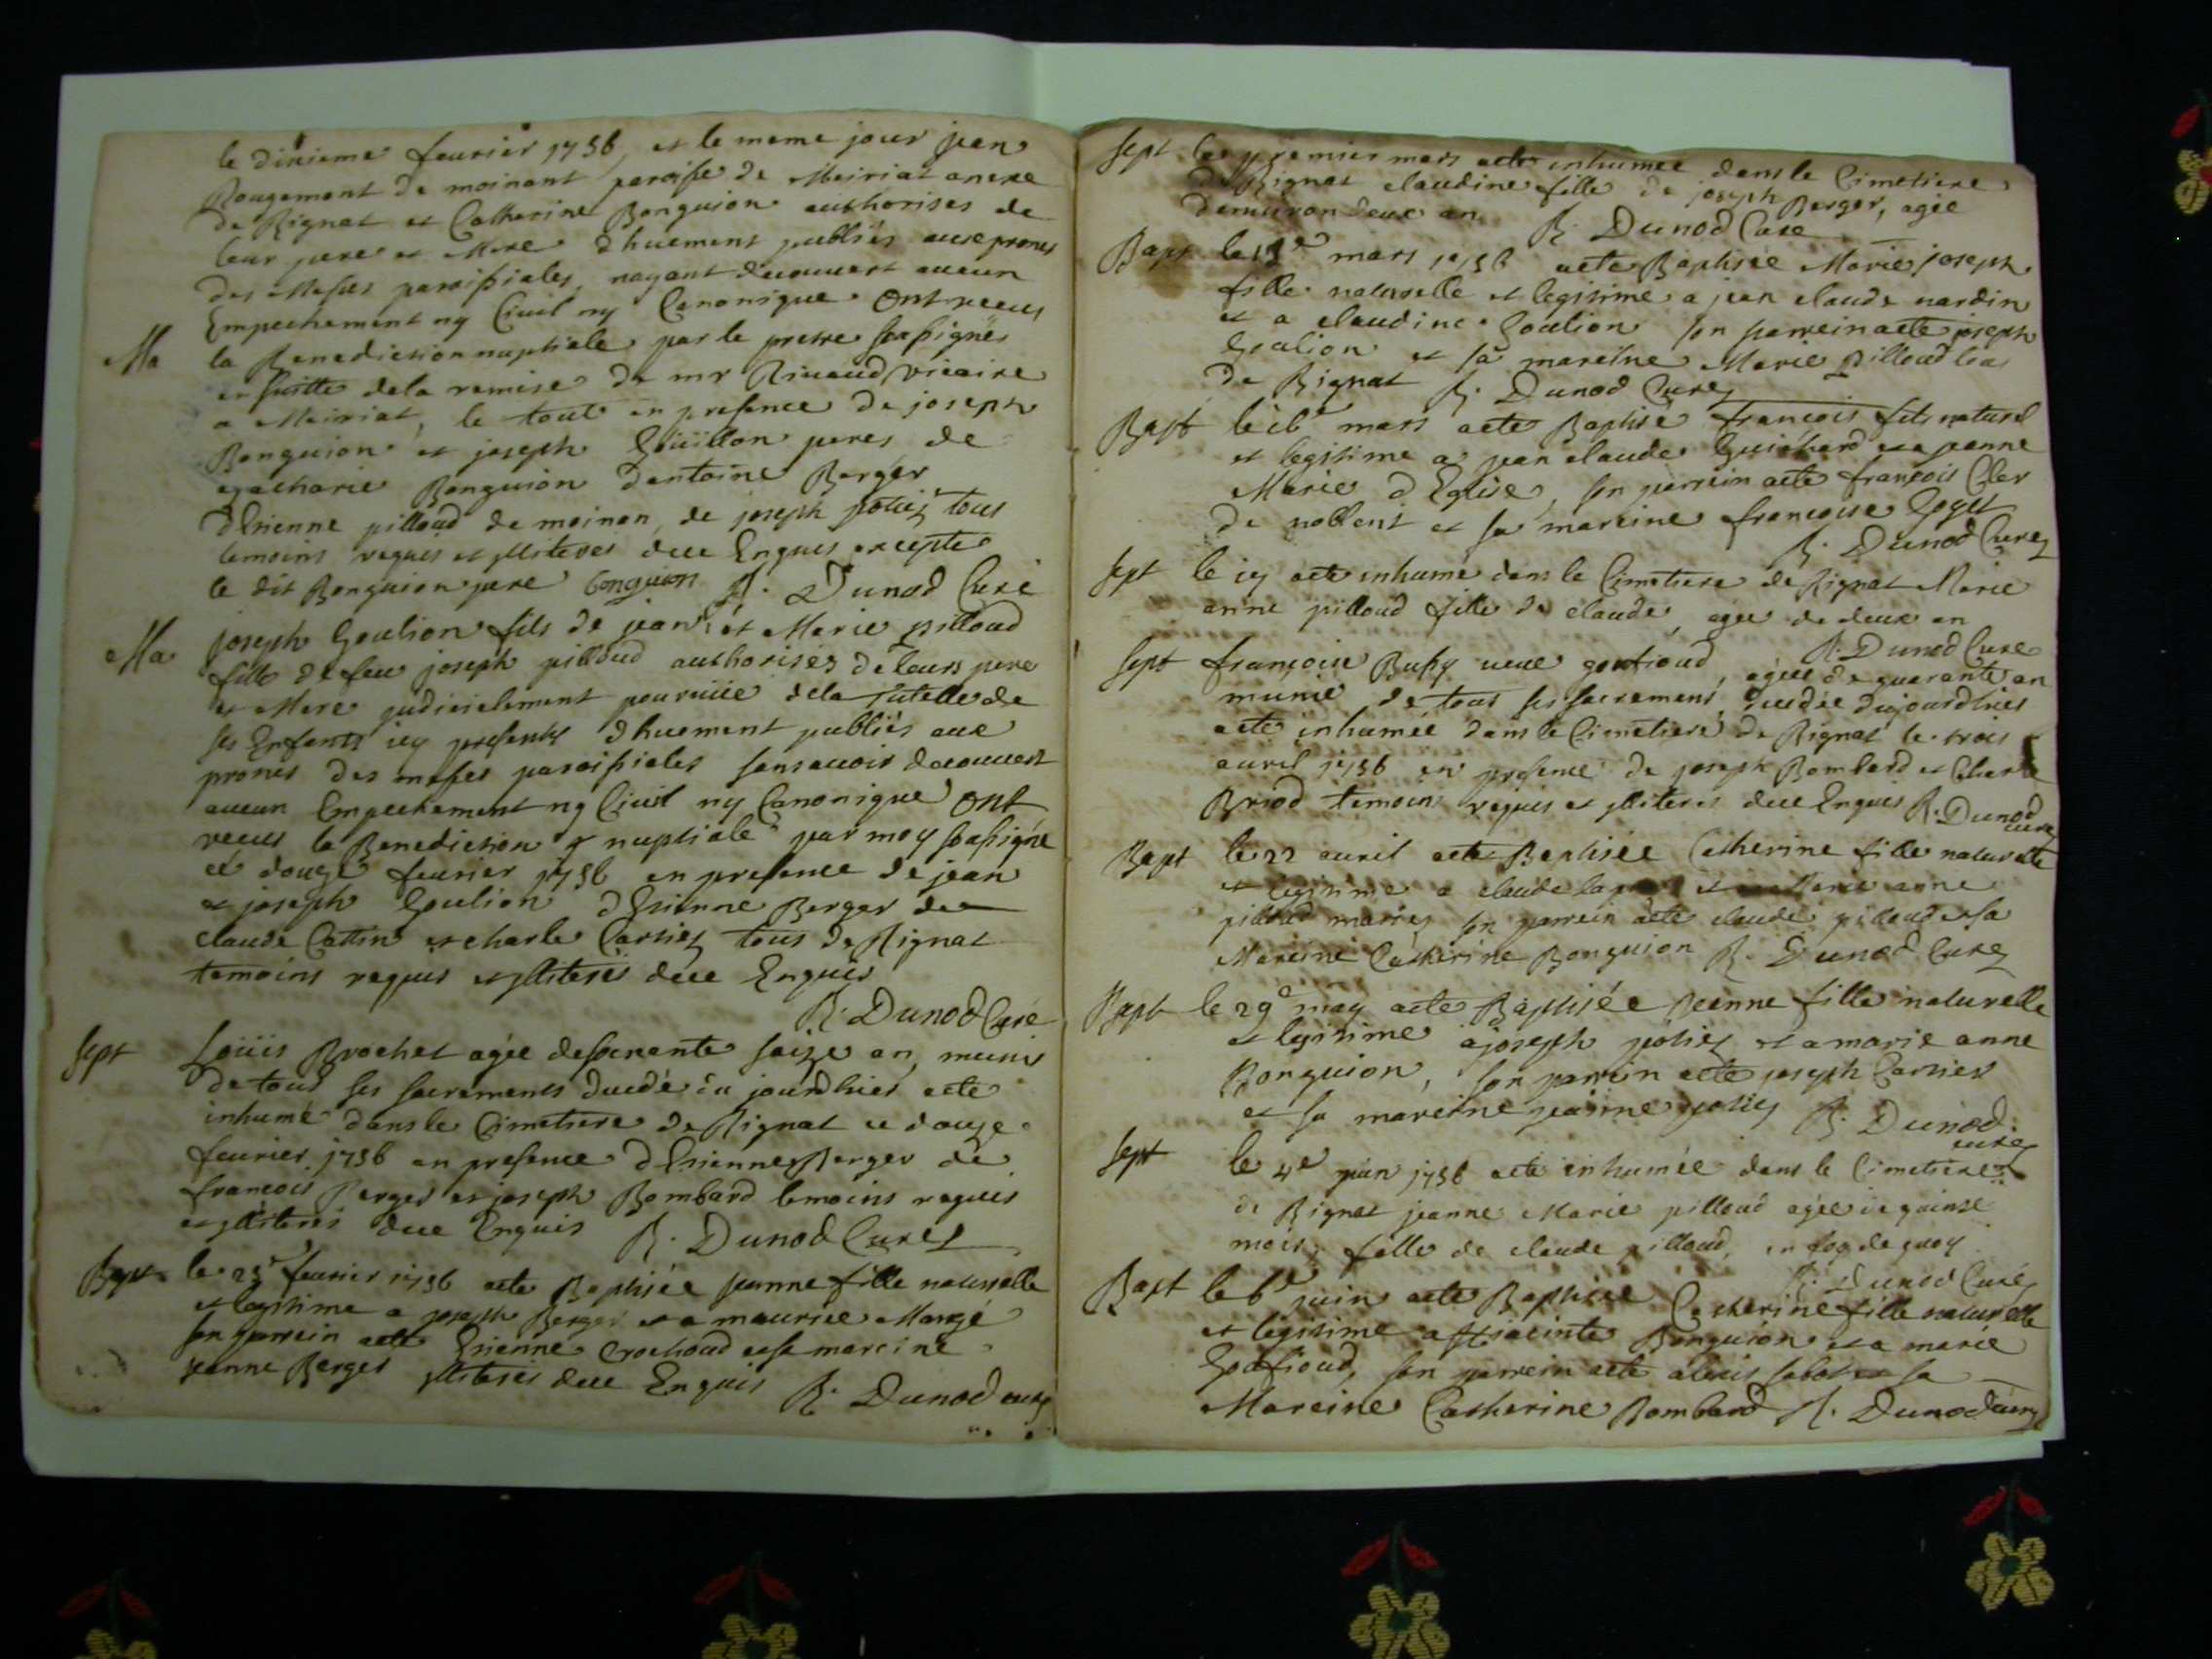 le dixieme feurier 1756, et le meme jour jean
Rougemont de moinant paroisse de Meiriat anexe
de Rignat et Catherine Bonguion authorises de
leur pere et Mere dhuement publiés aux prones
des Messes paroissiales, nayant decouuert aucun
Empechement ny Ciuil ny Canonique ont receus
Ma la Benediction nuptiale par le pretre soussignés
en suitte dela remise de mr Rinaud vicaire
a Meiriat, le tout en presence de joseph
Bonguion et joseph peres de
Bonguion dantoine Berger
dEtienne pilloud de moinan, de joseph potiez tous
temoins requis et jlliteres due Enquis excepte
le dit Bonguion pere bonguion R. Dunod Curé
Ma joseph Goulion fils de jean et Marie pilloud
fille de feu joseph pilloud authorisés de leurs pere
et Mere judicielement pouruüe dela tutelle de
ses Enfants icy presents dhuement publiés aux
prones des messes paroissiales sans auoir decouuert
aucun Empechement ny Ciuil ny Canonique ont
receus la Benediction nuptiale par moy soussigné
ce douze feurier 1756 en presence de jean
et joseph Goulion dEtienne Berger de
claude Cattin et charle Cartiez tous de Rignat
temoins requis et jlliteres due Enquis
R. Dunod Curé
sept Loüis Brochet agée desoixante saize an, munis
de tous ses sacrements decedé du jourdhier aeté
inhumé dans le Cimetiere de Rignat ce douze
feurier 1756 en presence dEtienne Berger de
francois Berger et joseph Bombard temoins requis
et jlliteres due Enquis R. Dunod Curez
Bapt le 23e feurier 1756 aeté Baptisée jeanne fille naturelle
et legitime a joseph Berger et a maurise
son parrein aeté Etienne Crochoud et sa mareine
jeanne Berger jlliteres due Enquis R. Dunod curez
sept le premier mars aeté inhumée dans le Cimetiere
de Rignat claudine fille de joseph Berger, agée
denuiron deux an R. Dunod Cure
Bapt mars 1756 aeté Baptisée Marie joseph
fille naturelle et legitime a jean claude nardin
et a claudine Goulion son parrein aeté joseph
Goulion et sa mareine Marie pilloud
de Rignat R. Dunod Curez
Bapt le 16e mars aeté Baptisé francois fils naturel
et legitime a jean claude Guichard et a jeanne
Marie dEglise, son parrein aeté francois Cler
de et sa mareine francoise Goget
R. Dunod Curez
sept le aeté inhumé dans le Cimetiere de Rignat Marie
anne pilloud fille de claude, agée de deux an
R. Dunod Cure
sept francoise Bussy ueue, agée de quarante an
munie de tous ses sacrement, decedée dujourdhier
aeté inhumée dans le Cimetiere de Rignat le trois
auril 1756 en presence de joseph Bombard et Charle
Briod temoins requis et jlliteres due Enquis R. Dunod
cure
Bapt le 22 auril aeté Baptisée Catherine fille naturelle
et legitime a claude et a Marie anne
pilloud mariez son parrein aeté claude pilloud et sa
Mareine Catherine Bonguion R. Dunod Curez
Bapt le 29e may aeté Baptisée jeanne fille naturelle
et legitime a joseph potiez et a marie anne
Bonguion, son parrein aeté joseph Cartiez
et sa mareine jeanne potiez R. Dunod
curez
sept le 4e juin 1756 aeté inhumée dans le Cimetiere
de Rignat jeanne Marie pilloud agée de quinse
mois, fille de claude pilloud, en foy de quoy
R. Dunod Curez
Bapt le 6e juin aeté Baptisée Catherine fille naturelle
et legitime a Hiacinte Bonguion et a marie
son parrein aeté alexis sabot et sa
Mareine Catherine Bombard R. Dunod curez